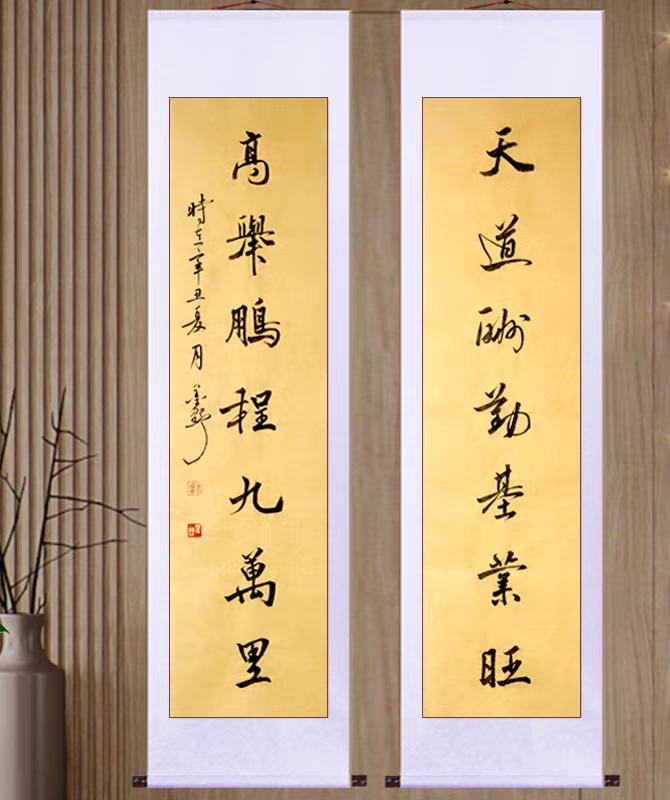 天道酬勤基業旺
高舉鵬程九萬里
時在辛丑夏月